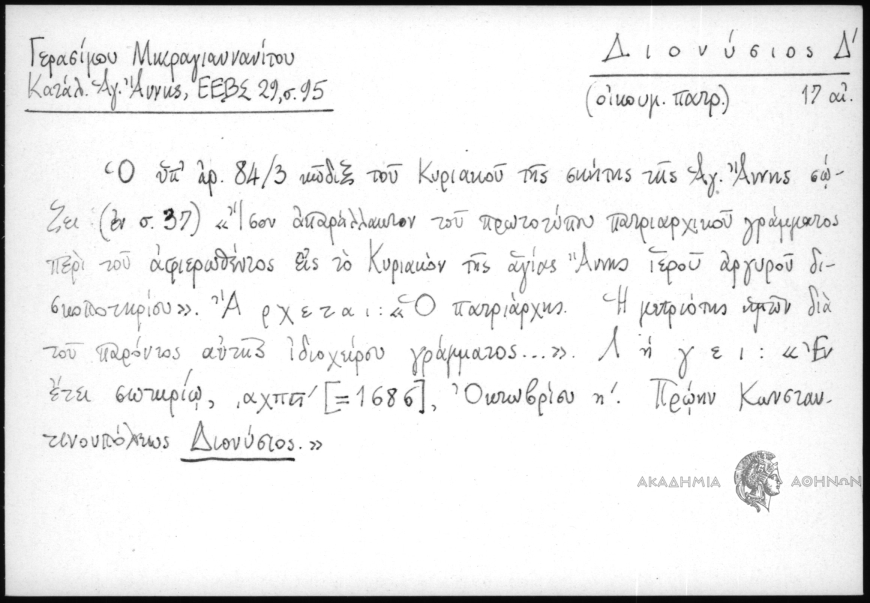 Γερασίμου Μικραγιαννανίτου
Κατάλ. Ἁγ. Ἄννης, ΕΕΒΣ 29, σ. 95
Διονύσιος Δ΄
(οἰκουμ. πατρ.) 17 αἰ.
Ὁ ὑπ' ἀρ. 84/3 κῶδιξ τοῦ Κυριακοῦ τῆς σκήτης τῆς Ἁγ. Ἄννης σῴ-
ζει (ἐν σ. 37) «Ἴσον ἀπαράλλακτον τοῦ πρωτοτύπου πατριαρχικοῦ γράμματος
περὶ τοῦ ἀφιερωθέντος εἰς τὸ Κυριακὸν τῆς ἁγίας Ἄννης ἱεροῦ ἀργυροῦ δι-
σκοποτηρίου». Ἄρχεται: «Ὁ πατριάρχης. Ἡ μετριότης ἡμῶν διὰ
τοῦ παρόντος αὐτῆς ἰδιοχείρου γράμματος...». Λήγει: «Ἐν
ἔτει σωτηρίῳ, ͵αχπστ΄ [=1686], Ὀκτωβρίου η΄. Πρῴην Κωνσταν-
τινουπόλεως Διονύσιος.»
ΑΚΑΔΗΜΙΑ ΑΘΗΝΩΝ